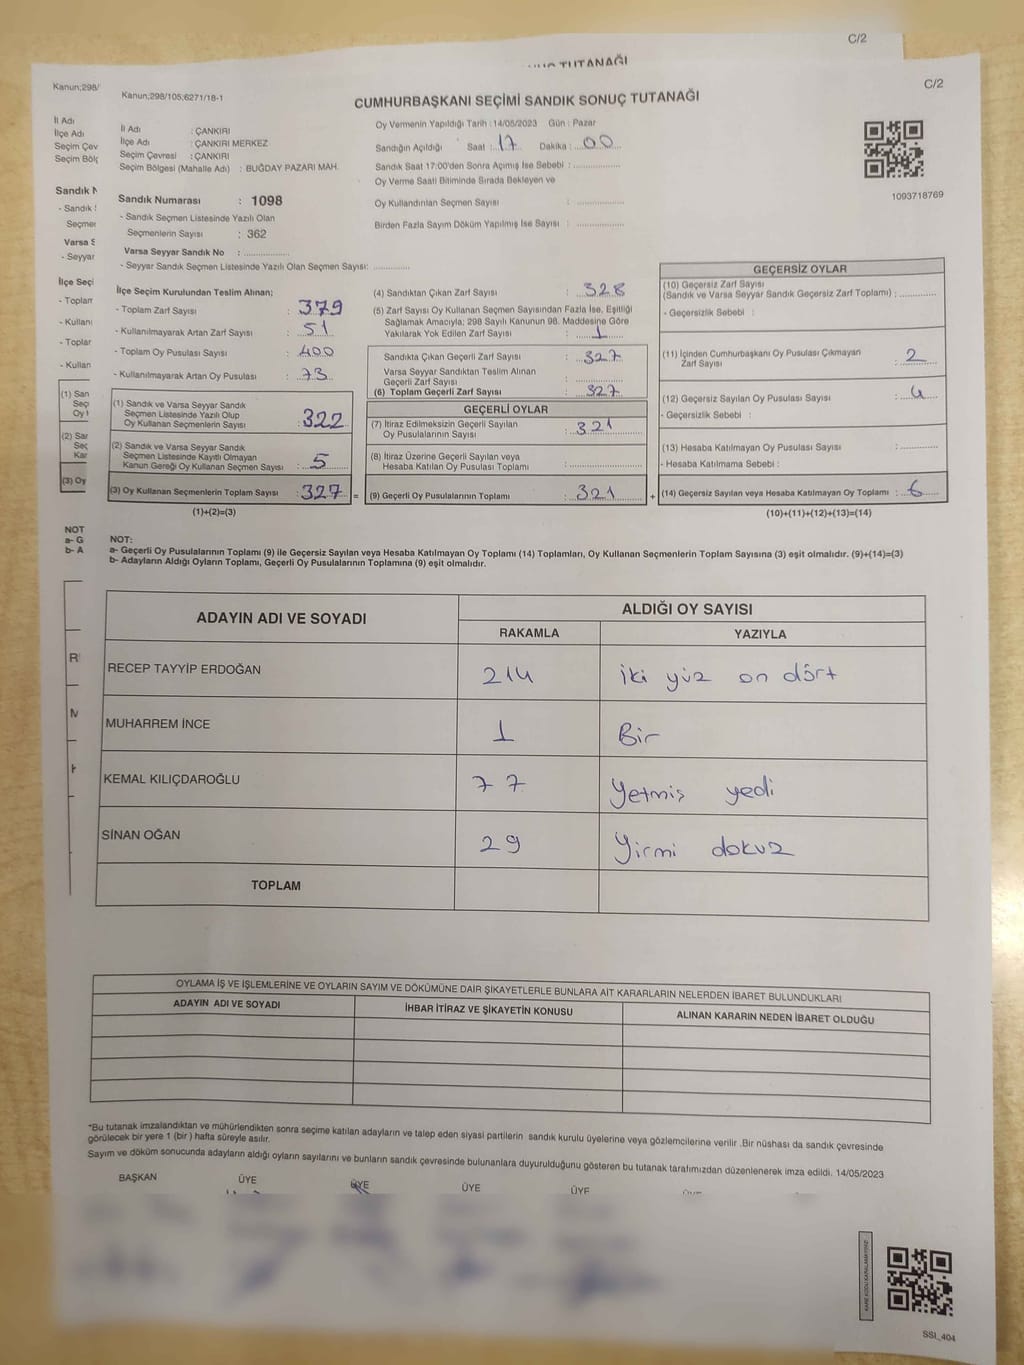 C/2
TUTANAĞI
C/2
Kanun;298/
Kanun;298/105;6271/18-1
CUMHURBAŞKANI SEÇİMİ SANDIK SONUÇ TUTANAĞI
İl Adı
İlçe Adı
Seçim Çev
Seçim Böl
İl Adı : ÇANKIRI
İlçe Adı : ÇANKIRI MERKEZ
Seçim Çevresi : ÇANKIRI
Seçim Bölgesi (Mahalle Adı) : BUĞDAY PAZARI MAH.
Oy Vermenin Yapıldığı Tarih :14/05/2023 Gün : Pazar
Sandığın Açıldığı Saat : 17 Dakika : 00
Sandık Saat 17:00'den Sonra Açımış İse Sebebi : ...............
Oy Verme Saati Bitiminde Sırada Bekleyen ve
Oy Kullandırılan Seçmen Sayısı : ...............
Birden Fazla Sayım Döküm Yapılmış İse Sayısı : ...............
1093718769
Sandık N
- Sandık
Seçmen
Varsa S
- Seyyar
Sandık Numarası : 1098
- Sandık Seçmen Listesinde Yazılı Olan
Seçmenlerin Sayısı : 362
Varsa Seyyar Sandık No : ...............
- Seyyar Sandık Seçmen Listesinde Yazılı Olan Seçmen Sayısı: ............
İlçe Seçi
- Toplam
- Kullanı
- Toplar
- Kullan
İlçe Seçim Kurulundan Teslim Alınan;
- Toplam Zarf Sayısı : 379
- Kullanılmayarak Artan Zarf Sayısı : 51
- Toplam Oy Pusulası Sayısı : 400
- Kullanılmayarak Artan Oy Pusulası : 73
(1) San
Seç
Oy
(2) San
Seç
Kan
(3) Oy
(1) Sandık ve Varsa Seyyar Sandık
Seçmen Listesinde Yazılı Olup
Oy Kullanan Seçmenlerin Sayısı : 322
(2) Sandık ve Varsa Seyyar Sandık
Seçmen Listesinde Kayıtlı Olmayan
Kanun Gereği Oy Kullanan Seçmen Sayısı : 5
(3) Oy Kullanan Seçmenlerin Toplam Sayısı : 327 =
(1)+(2)=(3)
(4) Sandıktan Çıkan Zarf Sayısı : 328
(5) Zarf Sayısı Oy Kullanan Seçmen Sayısından Fazla İse, Eşitliği
Sağlamak Amacıyla; 298 Sayılı Kanunun 98. Maddesine Göre
Yakılarak Yok Edilen Zarf Sayısı : 1
Sandıkta Çıkan Geçerli Zarf Sayısı : 327
Varsa Seyyar Sandıktan Teslim Alınan
Geçerli Zarf Sayısı : ...............
(6) Toplam Geçerli Zarf Sayısı : 327
GEÇERLİ OYLAR
(7) İtiraz Edilmeksizin Geçerli Sayılan
Oy Pusulalarının Sayısı : 321
(8) İtiraz Üzerine Geçerli Sayılan veya
Hesaba Katılan Oy Pusulası Toplamı : ...............
(9) Geçerli Oy Pusulalarının Toplamı : 321 +
GEÇERSİZ OYLAR
(10) Geçersiz Zarf Sayısı
(Sandık ve Varsa Seyyar Sandık Geçersiz Zarf Toplamı) : ............
- Geçersizlik Sebebi :
(11) İçinden Cumhurbaşkanı Oy Pusulası Çıkmayan
Zarf Sayısı : 2
(12) Geçersiz Sayılan Oy Pusulası Sayısı : 4
- Geçersizlik Sebebi :
(13) Hesaba Katılmayan Oy Pusulası Sayısı : ............
- Hesaba Katılmama Sebebi :
(14) Geçersiz Sayılan veya Hesaba Katılmayan Oy Toplamı : 6
(10)+(11)+(12)+(13)=(14)
NOT
a- G
b- A
NOT:
a- Geçerli Oy Pusulalarının Toplamı (9) ile Geçersiz Sayılan veya Hesaba Katılmayan Oy Toplamı (14) Toplamları, Oy Kullanan Seçmenlerin Toplam Sayısına (3) eşit olmalıdır. (9)+(14)=(3)
b- Adayların Aldığı Oyların Toplamı, Geçerli Oy Pusulalarının Toplamına (9) eşit olmalıdır.
ADAYIN ADI VE SOYADI
ALDIĞI OY SAYISI
RAKAMLA YAZIYLA
RECEP TAYYİP ERDOĞAN 214 iki yüz on dört
MUHARREM İNCE 1 Bir
KEMAL KILIÇDAROĞLU 77 Yetmiş yedi
SİNAN OĞAN 29 Yirmi dokuz
TOPLAM
OYLAMA İŞ VE İŞLEMLERİNE VE OYLARIN SAYIM VE DÖKÜMÜNE DAİR ŞİKAYETLERLE BUNLARA AİT KARARLARIN NELERDEN İBARET BULUNDUKLARI
ADAYIN ADI VE SOYADI İHBAR İTİRAZ VE ŞİKAYETİN KONUSU ALINAN KARARIN NEDEN İBARET OLDUĞU
*Bu tutanak imzalandıktan ve mühürlendikten sonra seçime katılan adayların ve talep eden siyasi partilerin sandık kurulu üyelerine veya gözlemcilerine verilir .Bir nüshası da sandık çevresinde
görülecek bir yere 1 (bir ) hafta süreyle asılır.
Sayım ve döküm sonucunda adayların aldığı oyların sayılarını ve bunların sandık çevresinde bulunanlara duyurulduğunu gösteren bu tutanak tarafımızdan düzenlenerek imza edildi. 14/05/2023
BAŞKAN ÜYE ÜYE ÜYE ÜYE
SSI_404